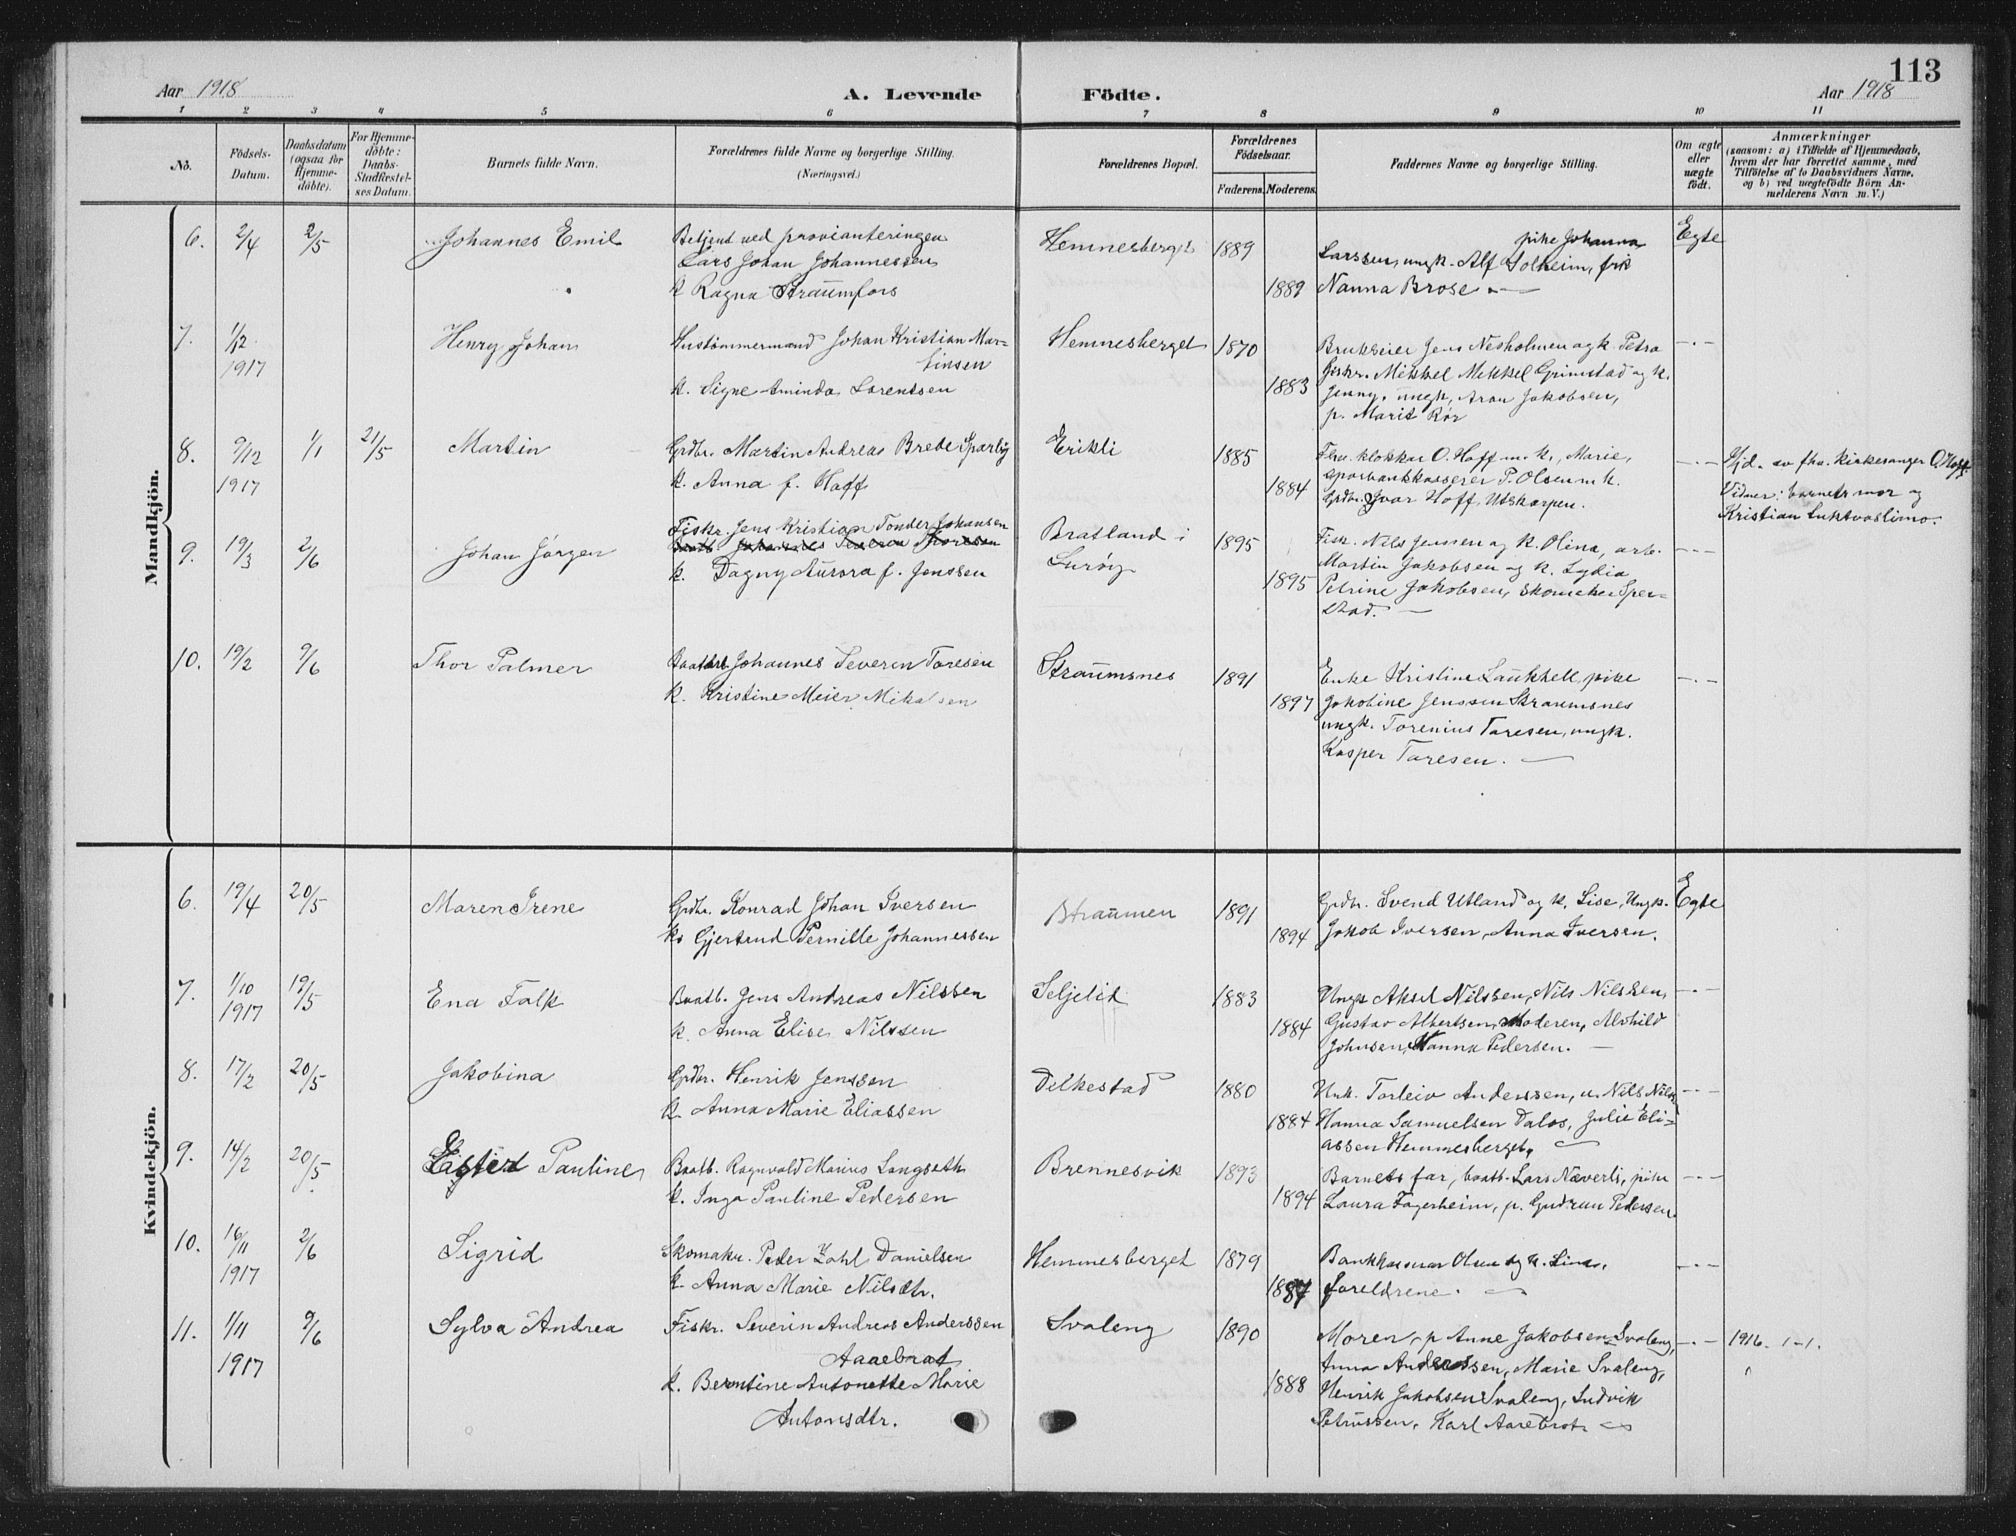 113
Aar 1918 A. Levende Födte. Aar 1918
1 2 3 4 5 6 7 8 9 10 11
No.
Födsels-
Datum.
Daabsdatum
(ogsaa for
Hjemme-
döbte).
For Hjemme-
döbte:
Daabs-
Stadfæstel-
ses Datum.
Barnets fulde Navn.
Forældrenes fulde Navne og borgerlige Stilling.
(Næringsvei.)
Forældrenes Bopæl.
Forældrenes
Födselsaar.
Faderens. Moderens.
Faddernes Navne og borgerlige Stilling.
Om ægte
eller
uægte
födt.
Anmærkninger
(saasom: a) i Tilfælde af Hjemmedaab,
hvem der har forrettet samme, med
Tilföielse af to Daabsvidners Navne,
og b) ved uægtefödte Börn An-
melderens Navn m. V.)
Mandkjön.
6. 2/4 2/5 Johannes Emil
Betjent ved provianteringen
Lars Johan Johannessen
k Ragna Straumfors
Hemnesberget 1889
1889
pike Johanna
Larssen, ungk. Alf Solheim, frk
Nanna Brose
Egte
7. 1/12
1917
Henry Johan
Hustömmermand Johan Kristian Mar-
tinsen
k. Signe Aminda Lorentsen
Hemnesberget 1870
1883
Brukseier Jens Nesholmen og k. Petra
Fiskr. Mikkel Mikkel Grimstad og k.
Jenny, ungk. Aron Jakobsen,
p. Marit Rör
-·-
8. 9/12 1/1 21/5
1917
Martin
Grdbr. Martin Andreas Brede Sparby
k. Anna f. Hoff
Erikli 1885
1884
Fhv. klokker O. Hoff m. k., Marie,
sparbankkasserer P. Olsen m k.
Grdbr. Ivar Hoff, Utskarpen.
-·-
Hjd. av fhv. kirkesanger O. Hoff.
Vidner: barnets mor og
Kristian Luktvaslimo.
9. 19/3 2/6 Johan Jörgen
Fiskr. Jens Kristian Tonder Johansen
Baatb. Johannes Severin Thoresen
k. Dagny Aurora f. Jenssen
Bratland i
Luröy
1895
1895
Fisk. Nils Jensen og k. Olina, arb.
Martin Jakobsen og k. Lydia
Petrine Jakobsen, skomaker Sper-
stad.
-·-
10. 19/2 9/6 Thor Palmer
Baatb. Johannes Severin Toresen
k. Kristine Meier Mikalsen
Straumsnes 1891
1897
Enke Kristine Laukhell, pike
Jakobine Jenssen Straumsnes
ungk. Torenius Toresen, ungk.
Kasper Toresen.
-·-
Kvindekjön.
6. 19/4 20/5 Maren Irene
Grdbr. Konrad Johan Iversen
k. Gjertrud Pernille Johannessen
Straumen 1891
1894
Grdbr. Svend Utland og k. Lise, Ungk.
Jakob Iversen, Anna Iversen.
Egte
7. 1/10 19/5
1917
Ena Falk
Baatb. Jens Andreas Nilssen
k. Anna Elise Nilssen
Seljelid 1883
1884
Ungk Aksel Nilssen, Nils Nilssen,
Gustav Albertsen, Moderen, Alvhild
Johnsen, Hanna Pedersen.
-·-
8. 17/2 20/5 Jakobina
Grdbr. Henrik Jenssen
k. Anna Marie Eliassen
Dilkestad 1880
1884
Unk. Torleiv Anderssen, u. Nils Nilsen
Hanna Samuelsen Dalos, Julie Eli-
assen Hemnesberget.
-·-
9. 14/2 20/5 Pauline
Baatb. Ragnvald Marius Langseth
k. Inga Pauline Pedersen
Brennesvik 1893
1894
Barnets far, baatb. Lars Næverli, pike
Laura Fagerheim, p. Gudrun Pedersen.
-·-
10. 16/11 2/6
1917
Sigrid
Skomakr. Peder Zahl Danielsen
k. Anna Marie Nilsdtr.
Hemnesberget 1879
1887
Bankkasserer Olsen og k. Lina,
foreldrene.
-·-
11. 1/11 9/6
1917
Sylva Andrea
Fiskr. Severin Andreas Anderssen
Aarebrot
k. Berntine Antonette Marie
Antonsdtr.
Svaleng 1890
1888
Moren, p Anne Jakobsen Svaleng,
Anna Anderssen, Marie Svaleng,
Henrik Jakobsen Svaleng, Ludvik
Petrussen, Karl Aarebrot
-·-
1916. 1-1.